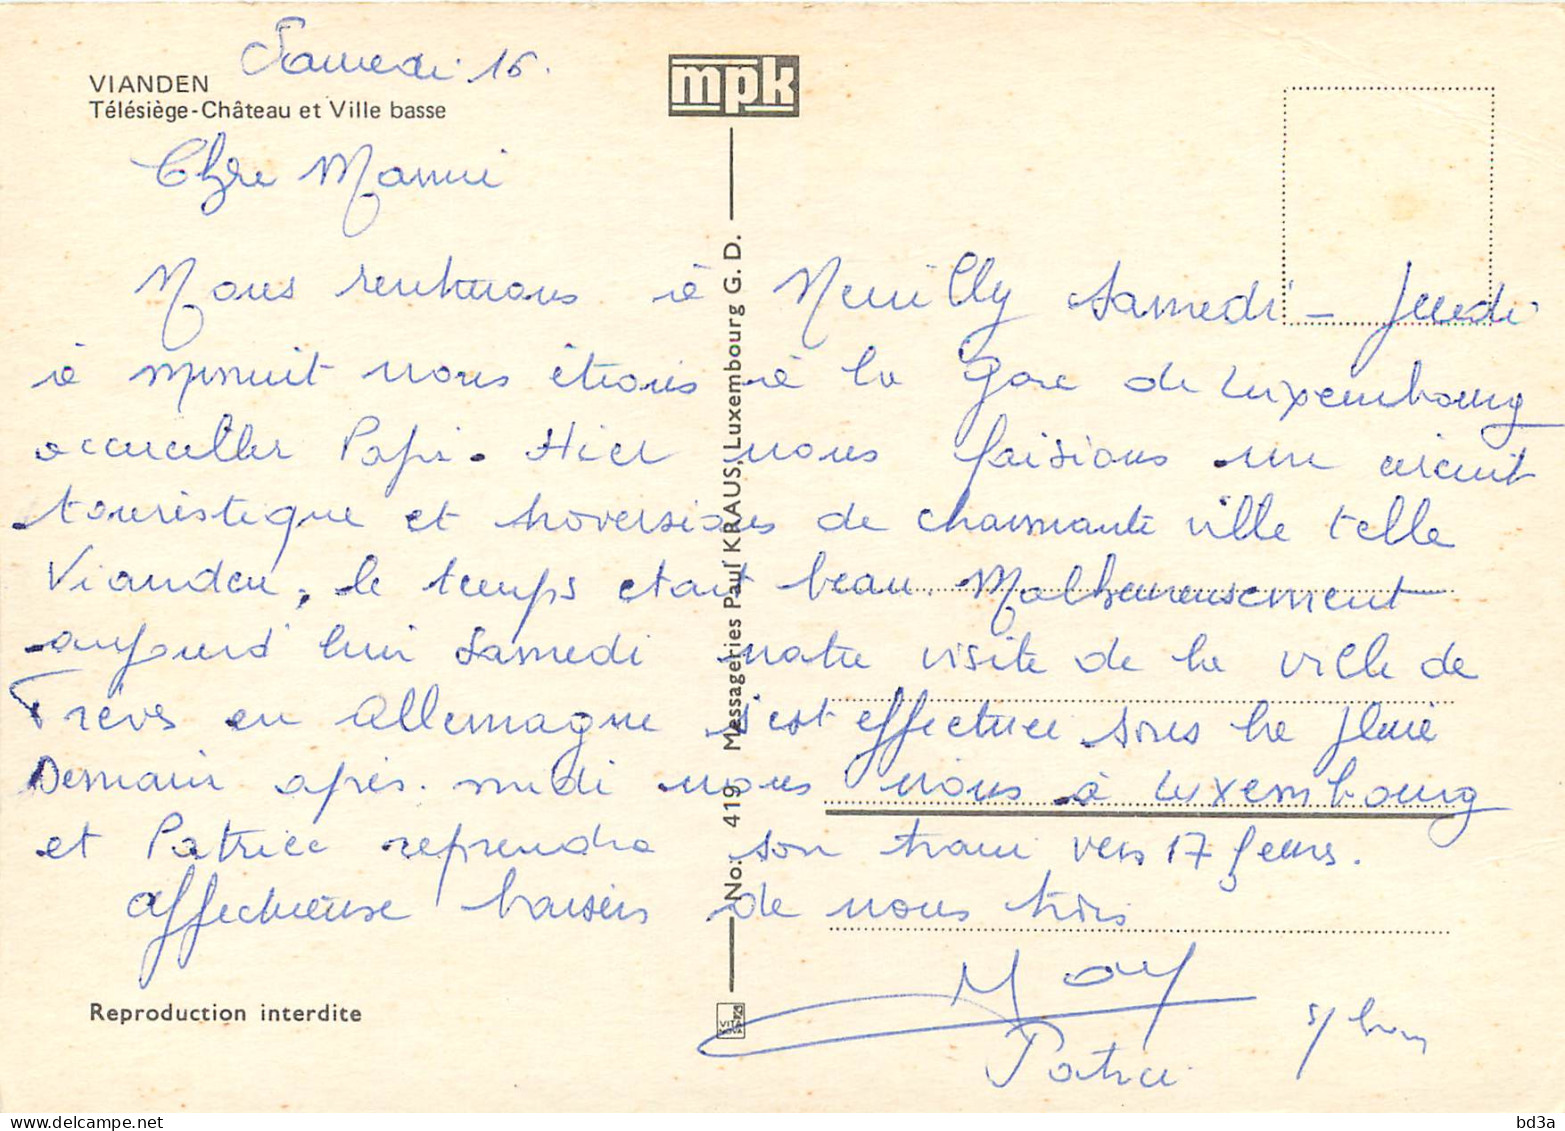 Samedi 16.
VIANDEN
Télésiège-Château et Ville basse
mpk
Chère Mamie
Nous rentrions à Neuilly Samedi - Jeudi
à minuit nous étions à la Gare de Luxembourg
accueillir Papi. Hier nous faisions un circuit
touristique et traversions de charmante ville telle
Vianden, le temps etait beau. Malheureusement
aujourd'hui Samedi notre visite de la ville de
Trèves en Allemagne s'est effectuée sous la pluie
Demain après-midi nous nous à Luxembourg
et Patrice reprendra son train vers 17 heures.
Affectueuse baisers de nous trois
Patrice
No: 419 Messageries Paul KRAUS, Luxembourg G. D.
Reproduction interdite
VITA NOVA
bd3a